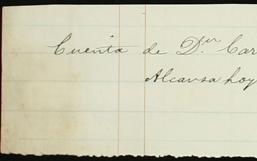 Cuenta de Dⁿ Car
Alcansa hoy